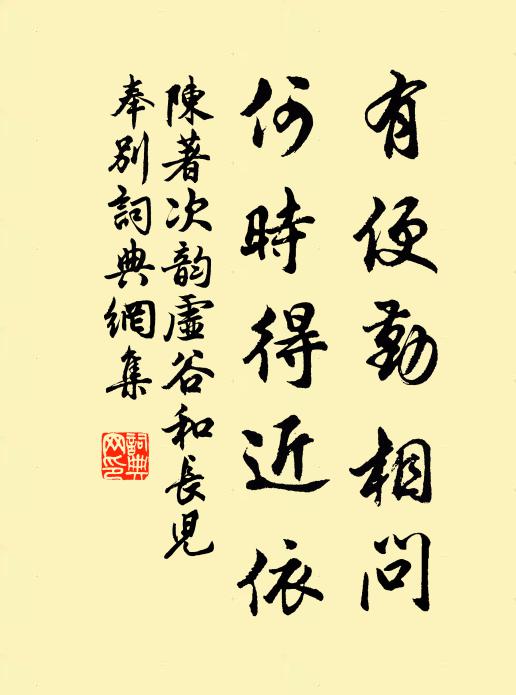 有便勤相問
何時得近依
陳著次韵虛谷和長児
奉別詞典網集
詞典网印